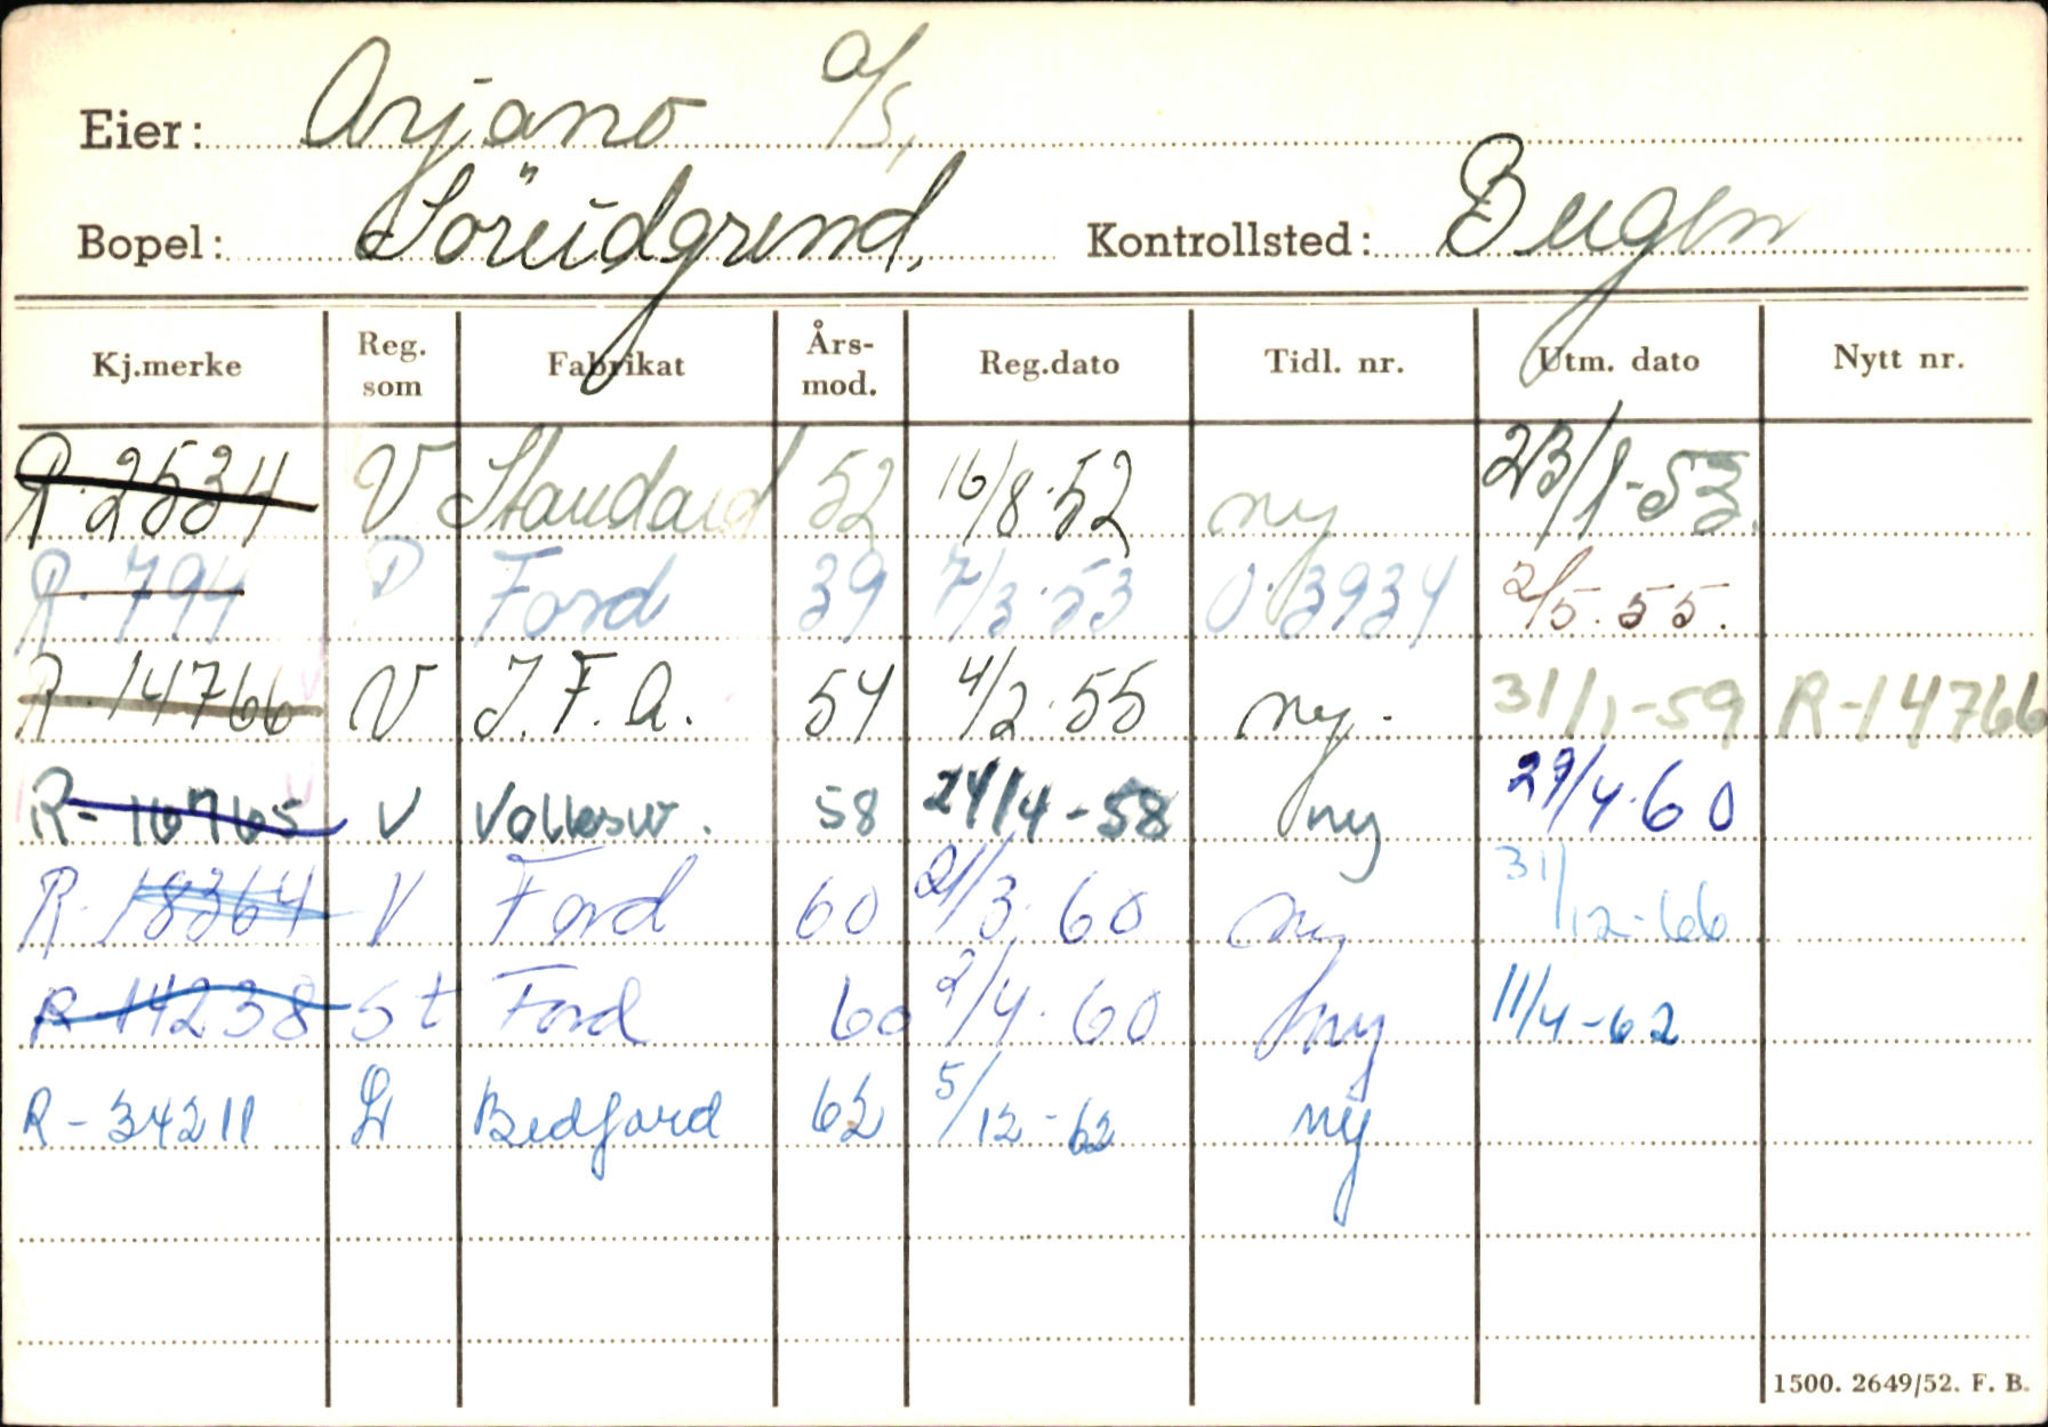 Eier: Arjano A/S,
Bopel: Söreidgrend, Kontrollsted:
Kj.merke Reg. som Fabrikat Års-mod. Reg.dato Tidl. nr. Utm. dato Nytt nr.
R. 2534 V Standard 52 16/8.52 ny 23/1-53.
R. 794 P Ford 39 7/3.53 O.3934 2/5.55.
R. 14766 V J.F.A. 54 4/2.55 ny. 31/1-59 R-14766
R- 16765 V Volksw. 58 24/4-58 ny 29/4.60
R. 18364 V Ford 60 21/3.60 ny 31/12-66
R-14238 St Ford 60 2/4.60 ny 11/4-62
R-34211 L Bedford 62 5/12-62 ny
1500. 2649/52. F. B.